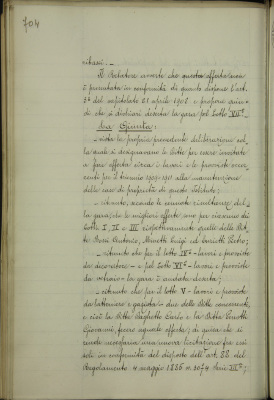 704
ribassi. —
Il Relatore avverte che questa offerta non
è presentata in conformità di quanto dispone l'art.
3º del capitolato 21 aprile 1908 e propone quin-
di che si dichiari deserta la gara pel Lotto VIIº.
La Giunta:
— vista la propria precedente deliberazione col-
la quale si designavano le Ditte per essere invitate
a fare offerta circa i lavori e le provviste occor-
renti pel triennio 1909-1911 alla manutenzione
delle case di proprietà di questo Istituto;
— ritenuto, secondo le risultanze del-
la gara, che le migliori offerte sono per ciascuno dei
Lotti I, II e III rispettivamente quelle delle Dit-
te Rossi Antonio, Minetti Luigi ed Pietro;
— ritenuto che per il lotto IVº - lavori e provviste
da decoratore - e pel Lotto VIº - lavori e provviste
da vetraio - la gara è andata deserta;
— ritenuto che per il lotto V - lavori e provviste
da lattoniere e gazista - due delle Ditte concorrenti,
e cioè la Ditta Carlo e la Ditta
Giovanni, fecero uguale offerta; di guisa che si
rende necessaria una nuova licitazione fra essi
sole in conformità del disposto dell'art. 88 del
Regolamento 4 maggio 1885 n. 3074 Serie IIIª;